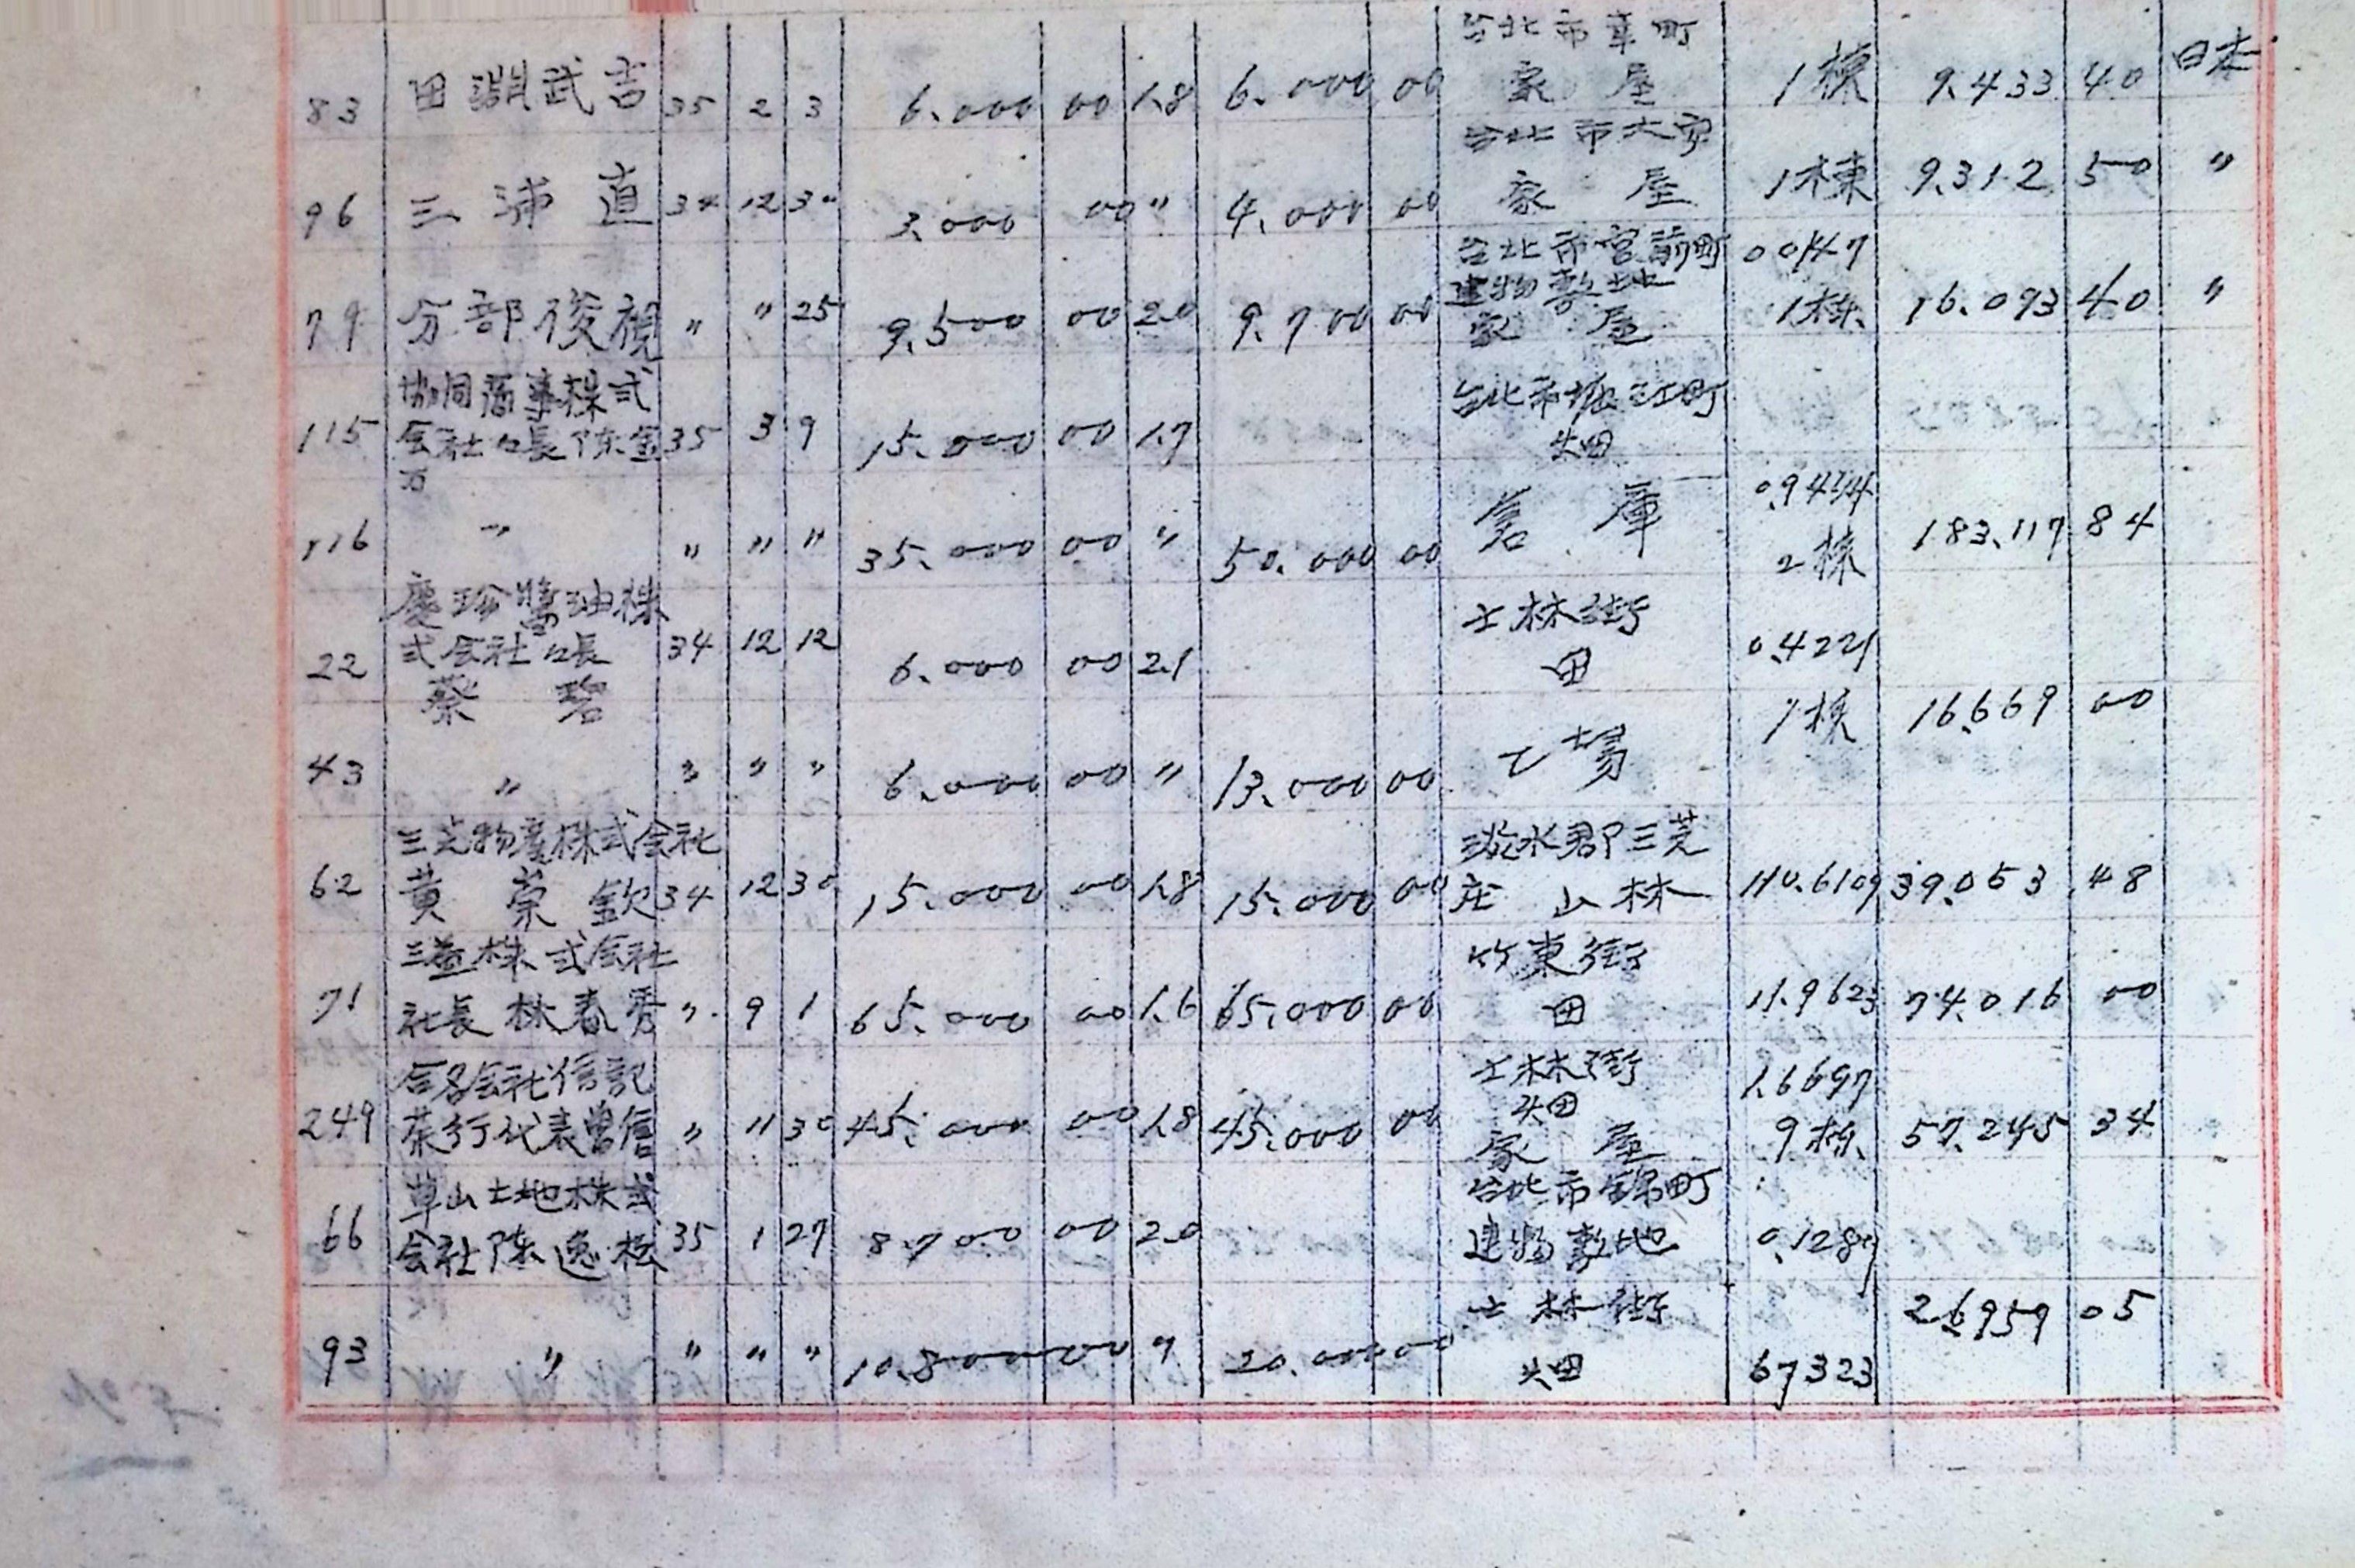 台北市幸町
83 田淵武吉 35 2 3 6.000 00 1.8 6.000 00 家屋 1棟 9.433 40 日本
台北市大安
96 三浦直 34 12 30 3.000 00 " 4.000 00 家屋 1棟 9.312 50 "
台北市宮前町 0.0147
建物敷地
79 分部俊視 " " 25 9.500 00 2.0 9.700 00 家屋 1棟 16.093 40 "
協同商事株式 台北市堀江町
115 会社々長陈金 35 3 9 15.000 00 1.7 畑
万
倉庫 0.9434
116 " " " " 35.000 00 " 50.000 00 2棟 183.117 84
慶珍醬油株 士林街
22 式会社々長 34 12 12 6.000 00 2.1 田 0.4221
蔡
1棟 16.669 00
43 " " " " 6.000 00 " 13.000 00 工場
三芝物産株式会社 淡水郡三芝
62 黄荣欽 34 12 30 15.000 00 1.8 15.000 00 庄 山林 110.6109 39.053 48
三益株式会社 竹東街
71 社長林春秀 " 9 1 65.000 00 1.6 65.000 00 田 11.9623 74.016 00
合名会社信記 士林街 1.6697
畑
249 茶行代表曽信 " 11 30 45.000 00 1.8 45.000 00 家屋 9棟 57.245 34
草山土地株式 台北市錦町
66 会社陈逸松 35 1 27 8.700 00 2.0 建物敷地 0.1289
士林街 26.959 05
93 " " " " 10.800 00 " 20.000 00 畑 67323